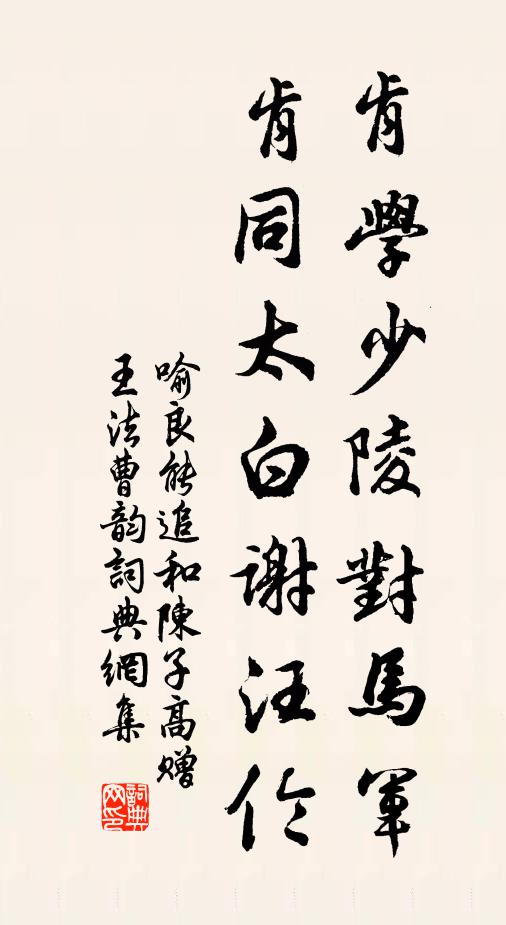 肯學少陵對馬軍
肯同太白謝汪伦
喻良能追和陳子高赠
王法曹韵詞典網集
詞典网印